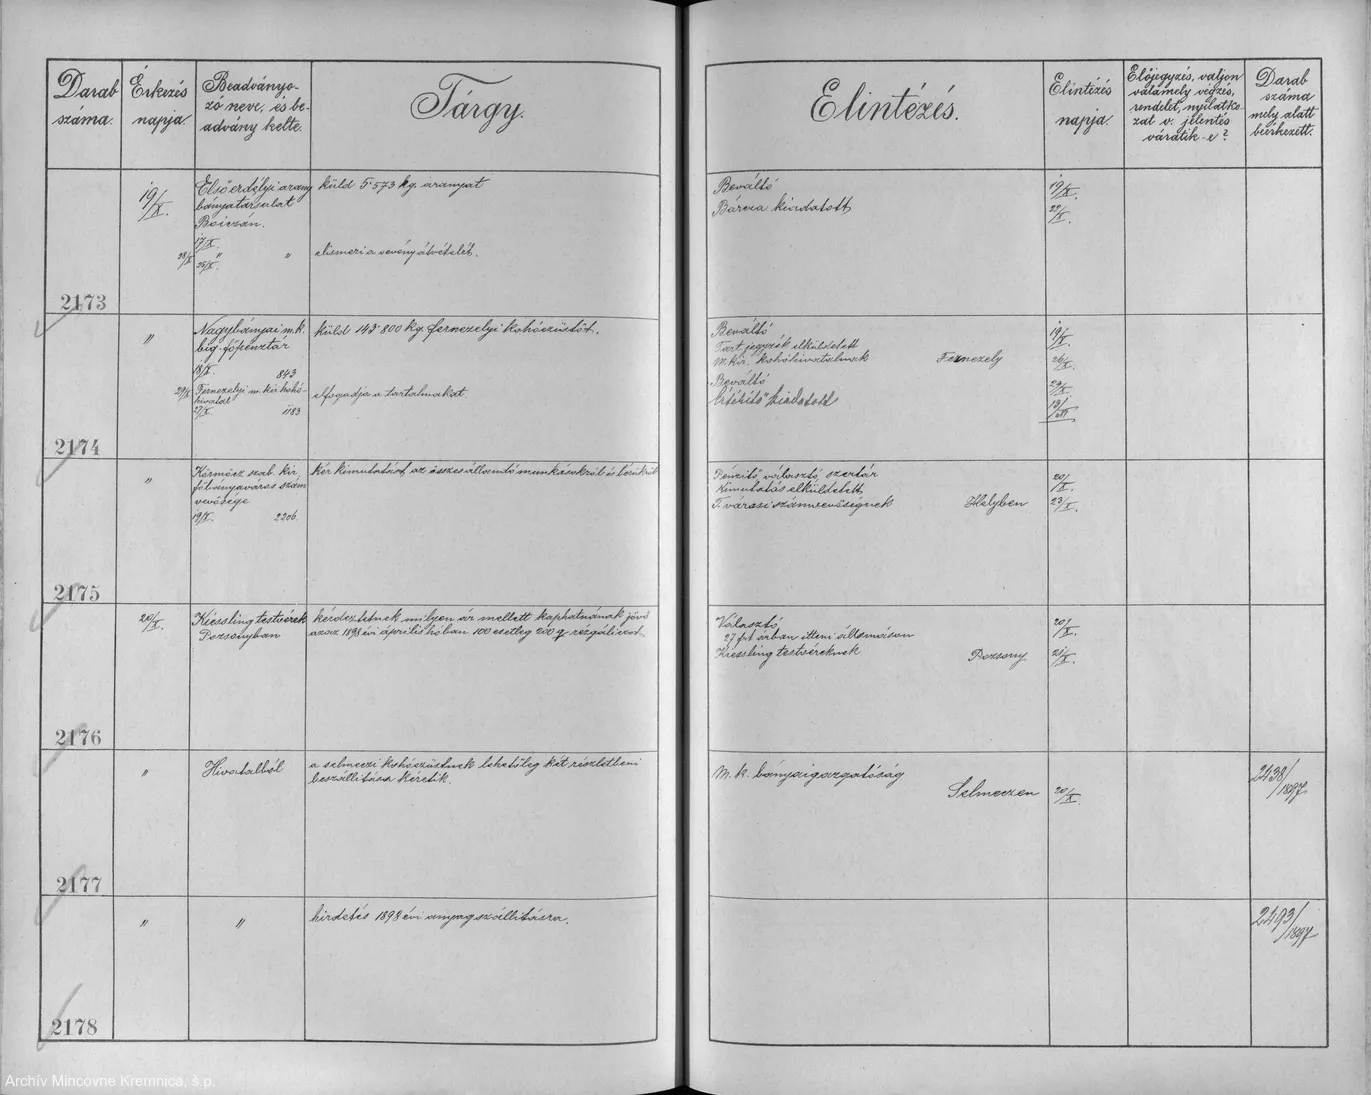 Darab
száma.
Érkezés
napja.
Beadványo-
zó neve, és be-
advány kelte.
Tárgy.
Elintézés.
Elintézés
napja.
Előjegyzés, valjon
valamely végzés,
rendelet, nyilatko-
zat v. jelentés
váratik-e?
Darab
száma
mely alatt
beérkezett.
2173
19/X.
Első erdélyi arany
bányatársulat
Boiczán.
17/X.
28/X " "
25/X.
küld 5·573 kg. aranyat
elismeri a vevény átvételét.
Beváltó
Bárcza kiadatott
19/X.
22/X.
2174
"
Nagybányai m. k.
big. főpénztár
18/X. 843
29/X Fernezelyi m. kir. kohó-
hivatal
27/X. 1183
küld 145·800 kg. fernezelyi kohóezüstöt.
elfogadja a tartalmakat.
Beváltó
Tart. jegyzék elküldetett
M. kir. kohóhivatalnak Fernezely
Beváltó
"Értesítő" kiadatott
19/X.
26/X.
29/X.
2175
"
Körmöcz szab. kir.
főbányaváros szám
vevősége
19/X. 2206.
kér kimutatást, az összes állandó munkásokról és bérükről
Pénzitő, választó, szertár
Kimutatás elküldetett
T. városi számvevőségnek Helyben
20/X.
23/X.
2176
20/X.
Kiessling testvérek
Pozsonyban
kérdeztetnek milyen ár mellett kaphatnának jövő
azaz 1898 évi április hóban 100 esetleg 200 q rézgáliczot.
Választó
27 frt árban itteni állomáson
Kiessling testvéreknek Pozsony
20/X.
21/X.
2177
"
Hivatalból
a selmeczi kohóezüstnek lehetőleg két részletbeni
beszállítása kéretik.
M. k. bányaigazgatóság
Selmeczen
20/X.
2438/1897
2178
" "
hirdetés 1898 évi anyagszállításra.
2493/1897
Archív Mincovne Kremnica, š.p.